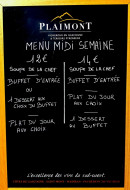 PLAIMONT
MENU MIDI SEMAINE
12€
SOUPE DE LA CHEF
BUFFET D'ENTRÉE
OU
1 DESSERT AUX
CHOIX DU BUFFET
PLAT DU JOUR
AUX CHOIX
14€
SOUPE DE LA CHEF
BUFFET D'ENTRÉE
PLAT DU JOUR
AUX CHOIX
1 DESSERT
AU BUFFET
L'excellence des vins du sud-ouest.